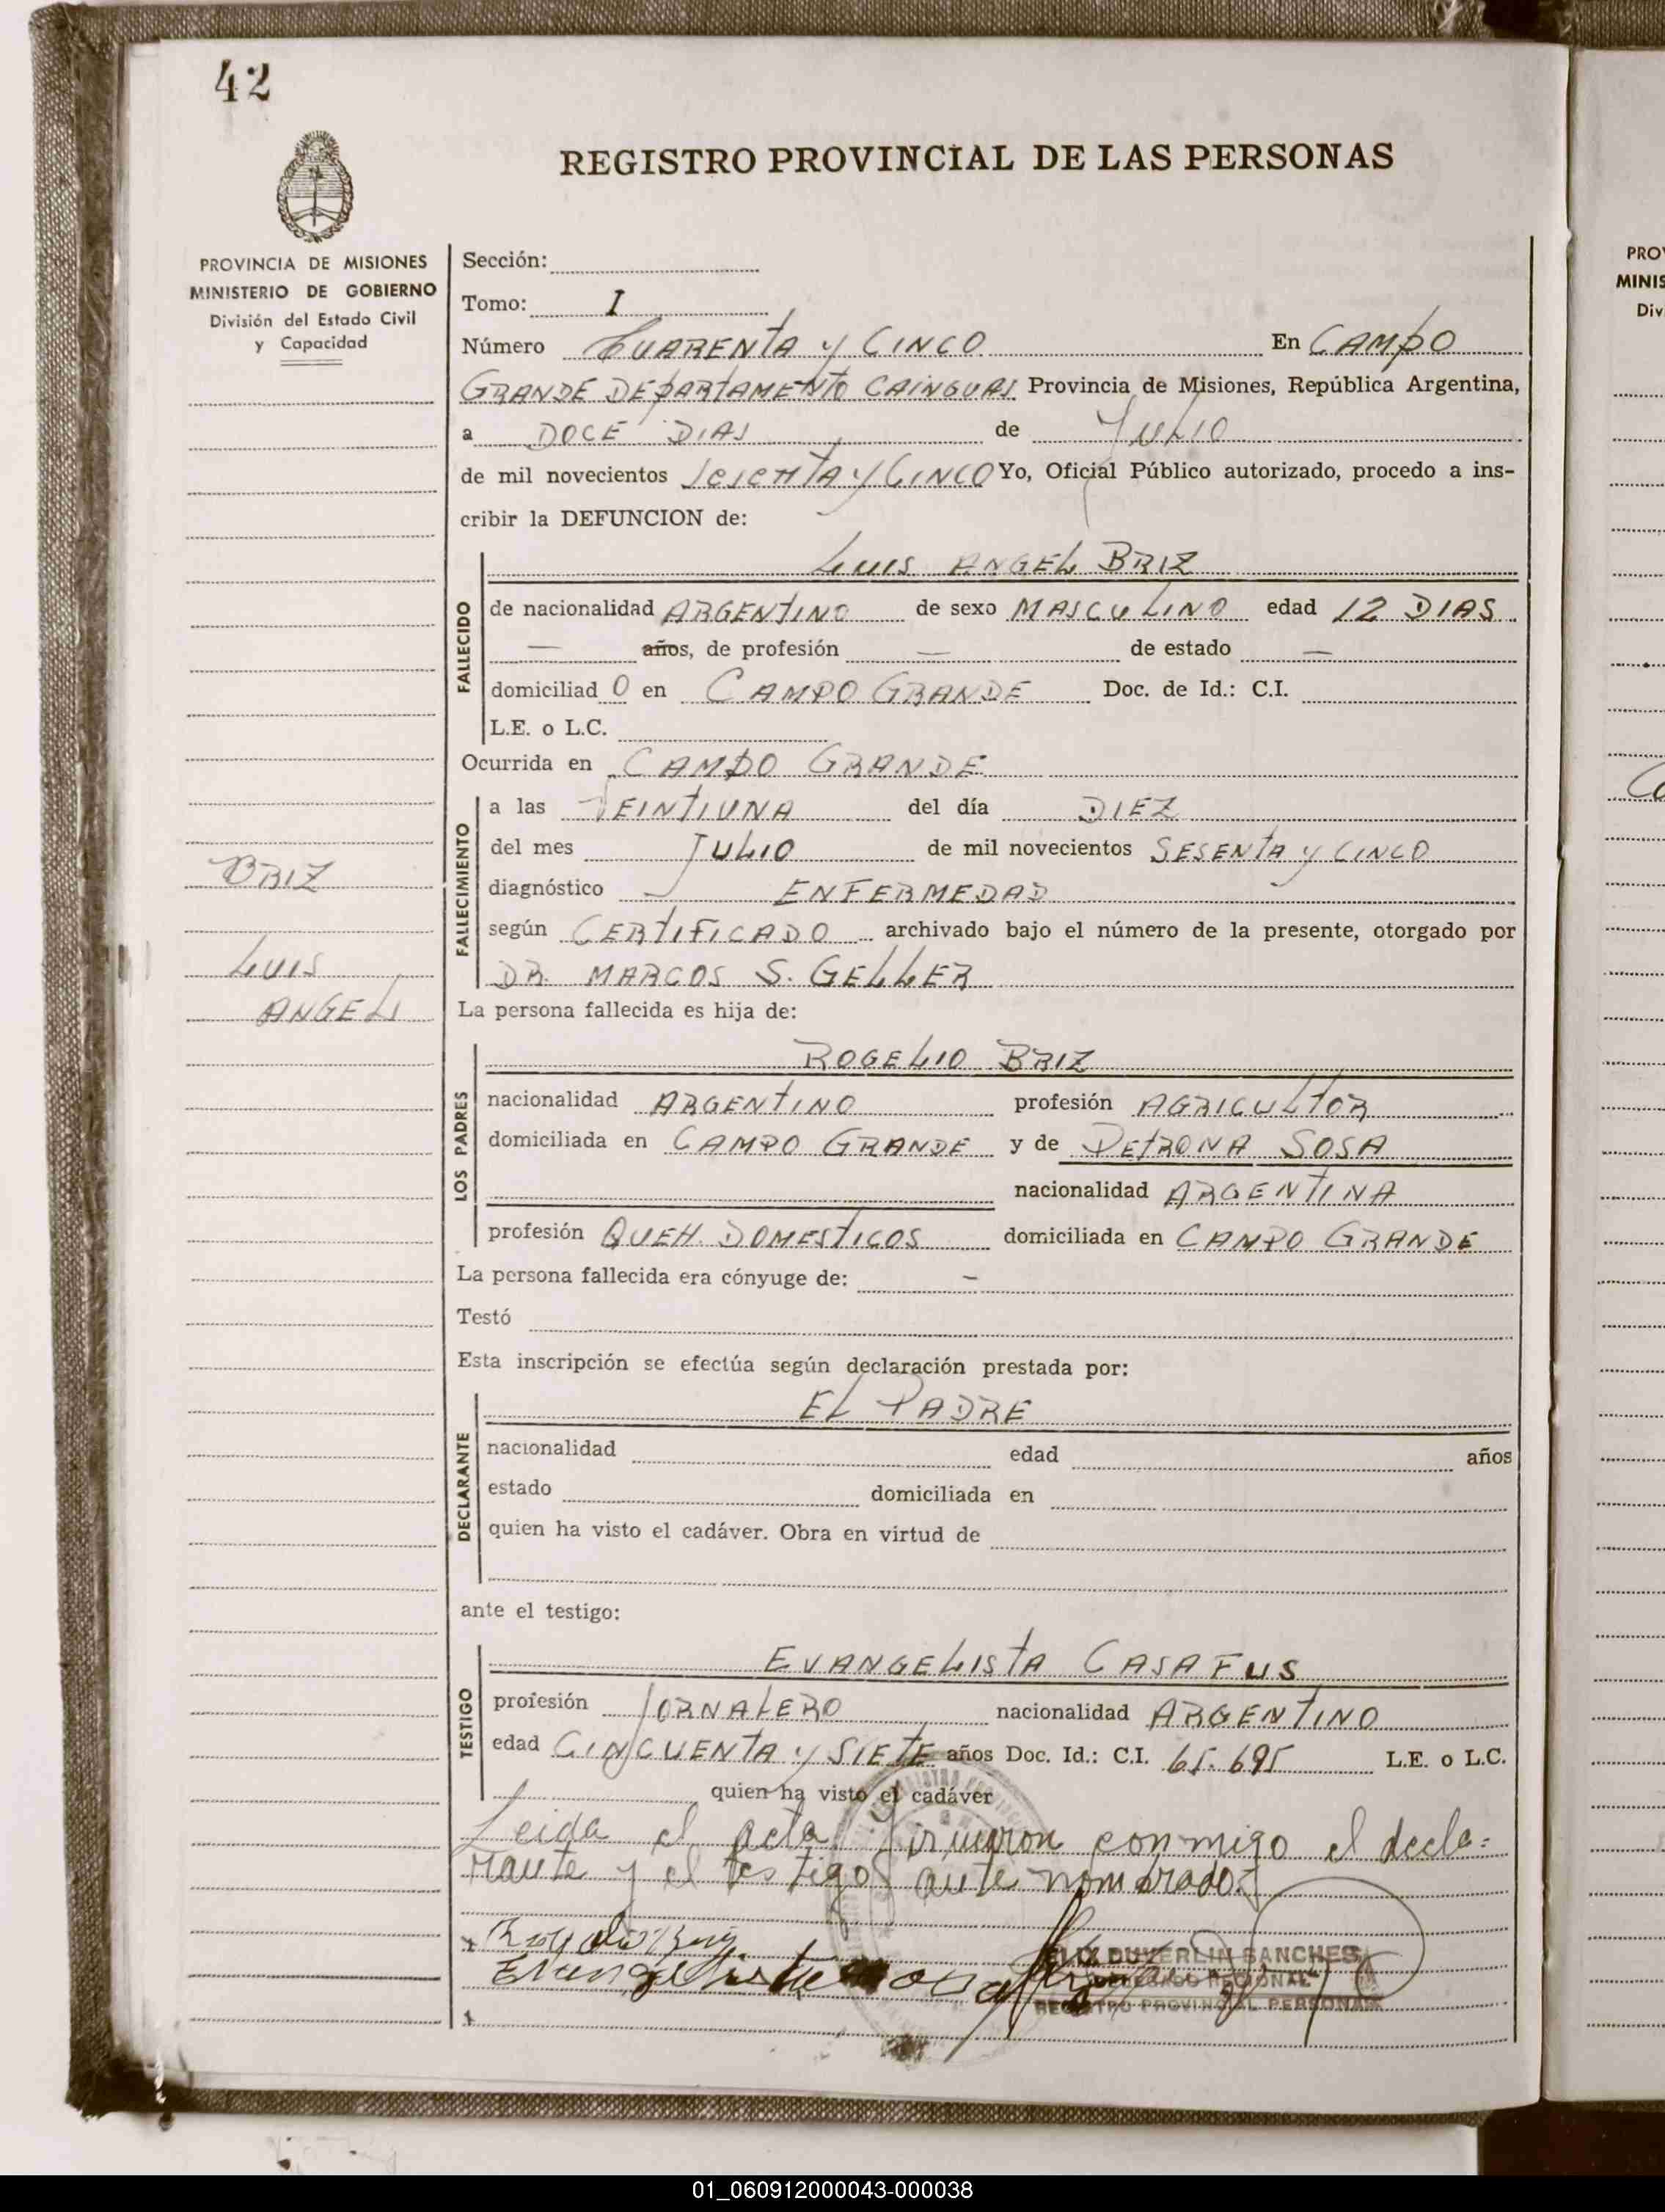 42
REGISTRO PROVINCIAL DE LAS PERSONAS
PROVINCIA DE MISIONES
MINISTERIO DE GOBIERNO
División del Estado Civil
y Capacidad
Sección:
Tomo: I
Número CUARENTA y CINCO En CAMPO
GRANDE DEPARTAMENTO CAINGUAS Provincia de Misiones, República Argentina,
a DOCE DIAS de JULIO
de mil novecientos SESENTA y CINCO Yo, Oficial Público autorizado, procedo a ins-
cribir la DEFUNCION de:
LUIS ANGEL BRIZ
FALLECIDO
de nacionalidad ARGENTINO de sexo MASCULINO edad 12 DIAS
— años, de profesión — de estado —
domiciliad O en CAMPO GRANDE Doc. de Id.: C.I.
L.E. o L.C.
Ocurrida en CAMPO GRANDE
FALLECIMIENTO
a las VEINTIUNA del día DIEZ
del mes JULIO de mil novecientos SESENTA y CINCO
diagnóstico ENFERMEDAD
según CERTIFICADO archivado bajo el número de la presente, otorgado por
DR. MARCOS S. GELLER
BRIZ
LUIS
ANGEL
La persona fallecida es hija de:
ROGELIO BRIZ
LOS PADRES
nacionalidad ARGENTINO profesión AGRICULTOR
domiciliada en CAMPO GRANDE y de PETRONA SOSA
nacionalidad ARGENTINA
profesión QUEH. DOMESTICOS domiciliada en CAMPO GRANDE
La persona fallecida era cónyuge de: -
Testó
Esta inscripción se efectúa según declaración prestada por:
EL PADRE
DECLARANTE
nacionalidad edad años
estado domiciliada en
quien ha visto el cadáver. Obra en virtud de
ante el testigo:
EVANGELISTA CASAFUS
TESTIGO
profesión JORNALERO nacionalidad ARGENTINO
edad CINCUENTA y SIETE años Doc. Id.: C.I. 65.695 L.E. o L.C.
quien ha visto el cadáver
Leida el acta, firmaron conmigo el decla=
rante y el testigo ante nombrados
Evangelista Casafus
FELIX DUVERLIN SANCHES
DELEGADO REGIONAL
REGISTRO PROVINCIAL PERSONAS
PRO
MINIS
Div
01_060912000043-000038